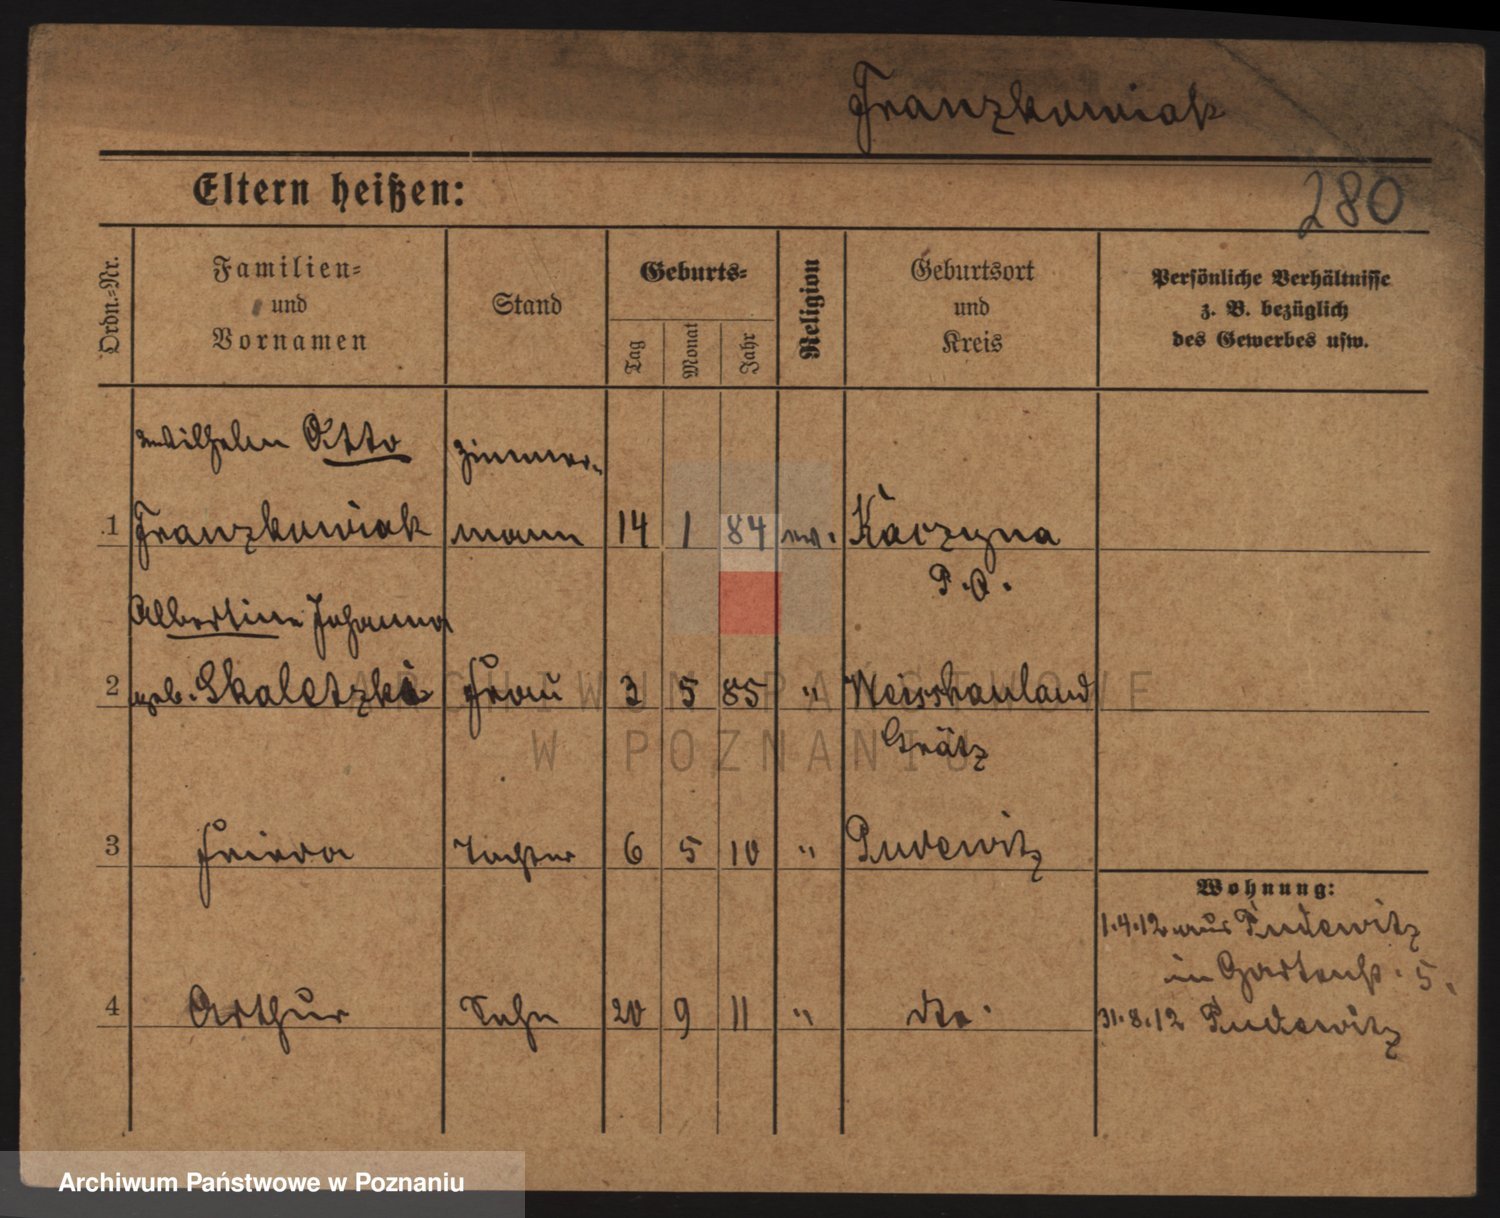 Franzkowiak
Eltern heißen:
280
Ordn.-Nr.
Familien-
und
Vornamen
Stand
Geburts-
Tag
Monat
Jahr
Religion
Geburtsort
und
Kreis
Persönliche Verhältnisse
z. B. bezüglich
des Gewerbes usw.
Wilhelm Otto Zimmer-
1 Franzkowiak mann 14 1 84 ev. Kaczyna
P. O.
Albertine Johanna
2 geb. Skaletzki Frau 3 5 85 " Weisshauland
Grätz
3 Frieda Tochter 6 5 10 " Pudewitz
Wohnung:
1.4.12 aus Pudewitz
in Gartenstr. 5.
4 Arthur Sohn 20 9 11 " dto.
31.8.12 Pudewitz
ARCHIWUM PAŃSTWOWE
W POZNANIU
Archiwum Państwowe w Poznaniu